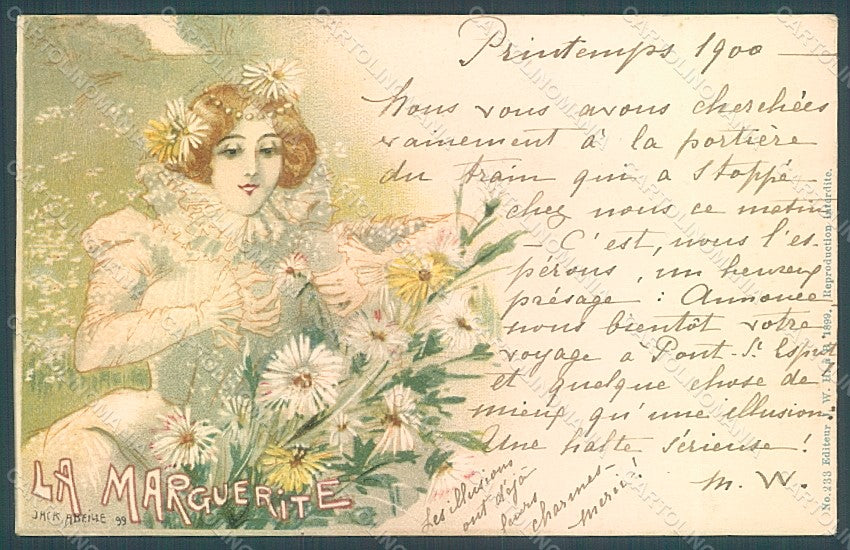 Printemps 1900 —
Nous vous avons cherchées
vainement à la portière
du train qui a stoppé
chez nous ce matin
— C'est, nous l'es
pérons, un heureux
présage : Annoncez
nous bientôt votre
voyage a Pont-St Esprit
et quelque chose de
mieux qu'une illusion.
Une halte sérieuse !
M. W.
Les illusions
ont déjà
leurs
charmes –
merci !
LA MARGUERITE
JACK ABEILLÉ 99
No. 233 Editeur W. H. à B. 1899. Reproduction interdite.
CARTOLINOMANIA